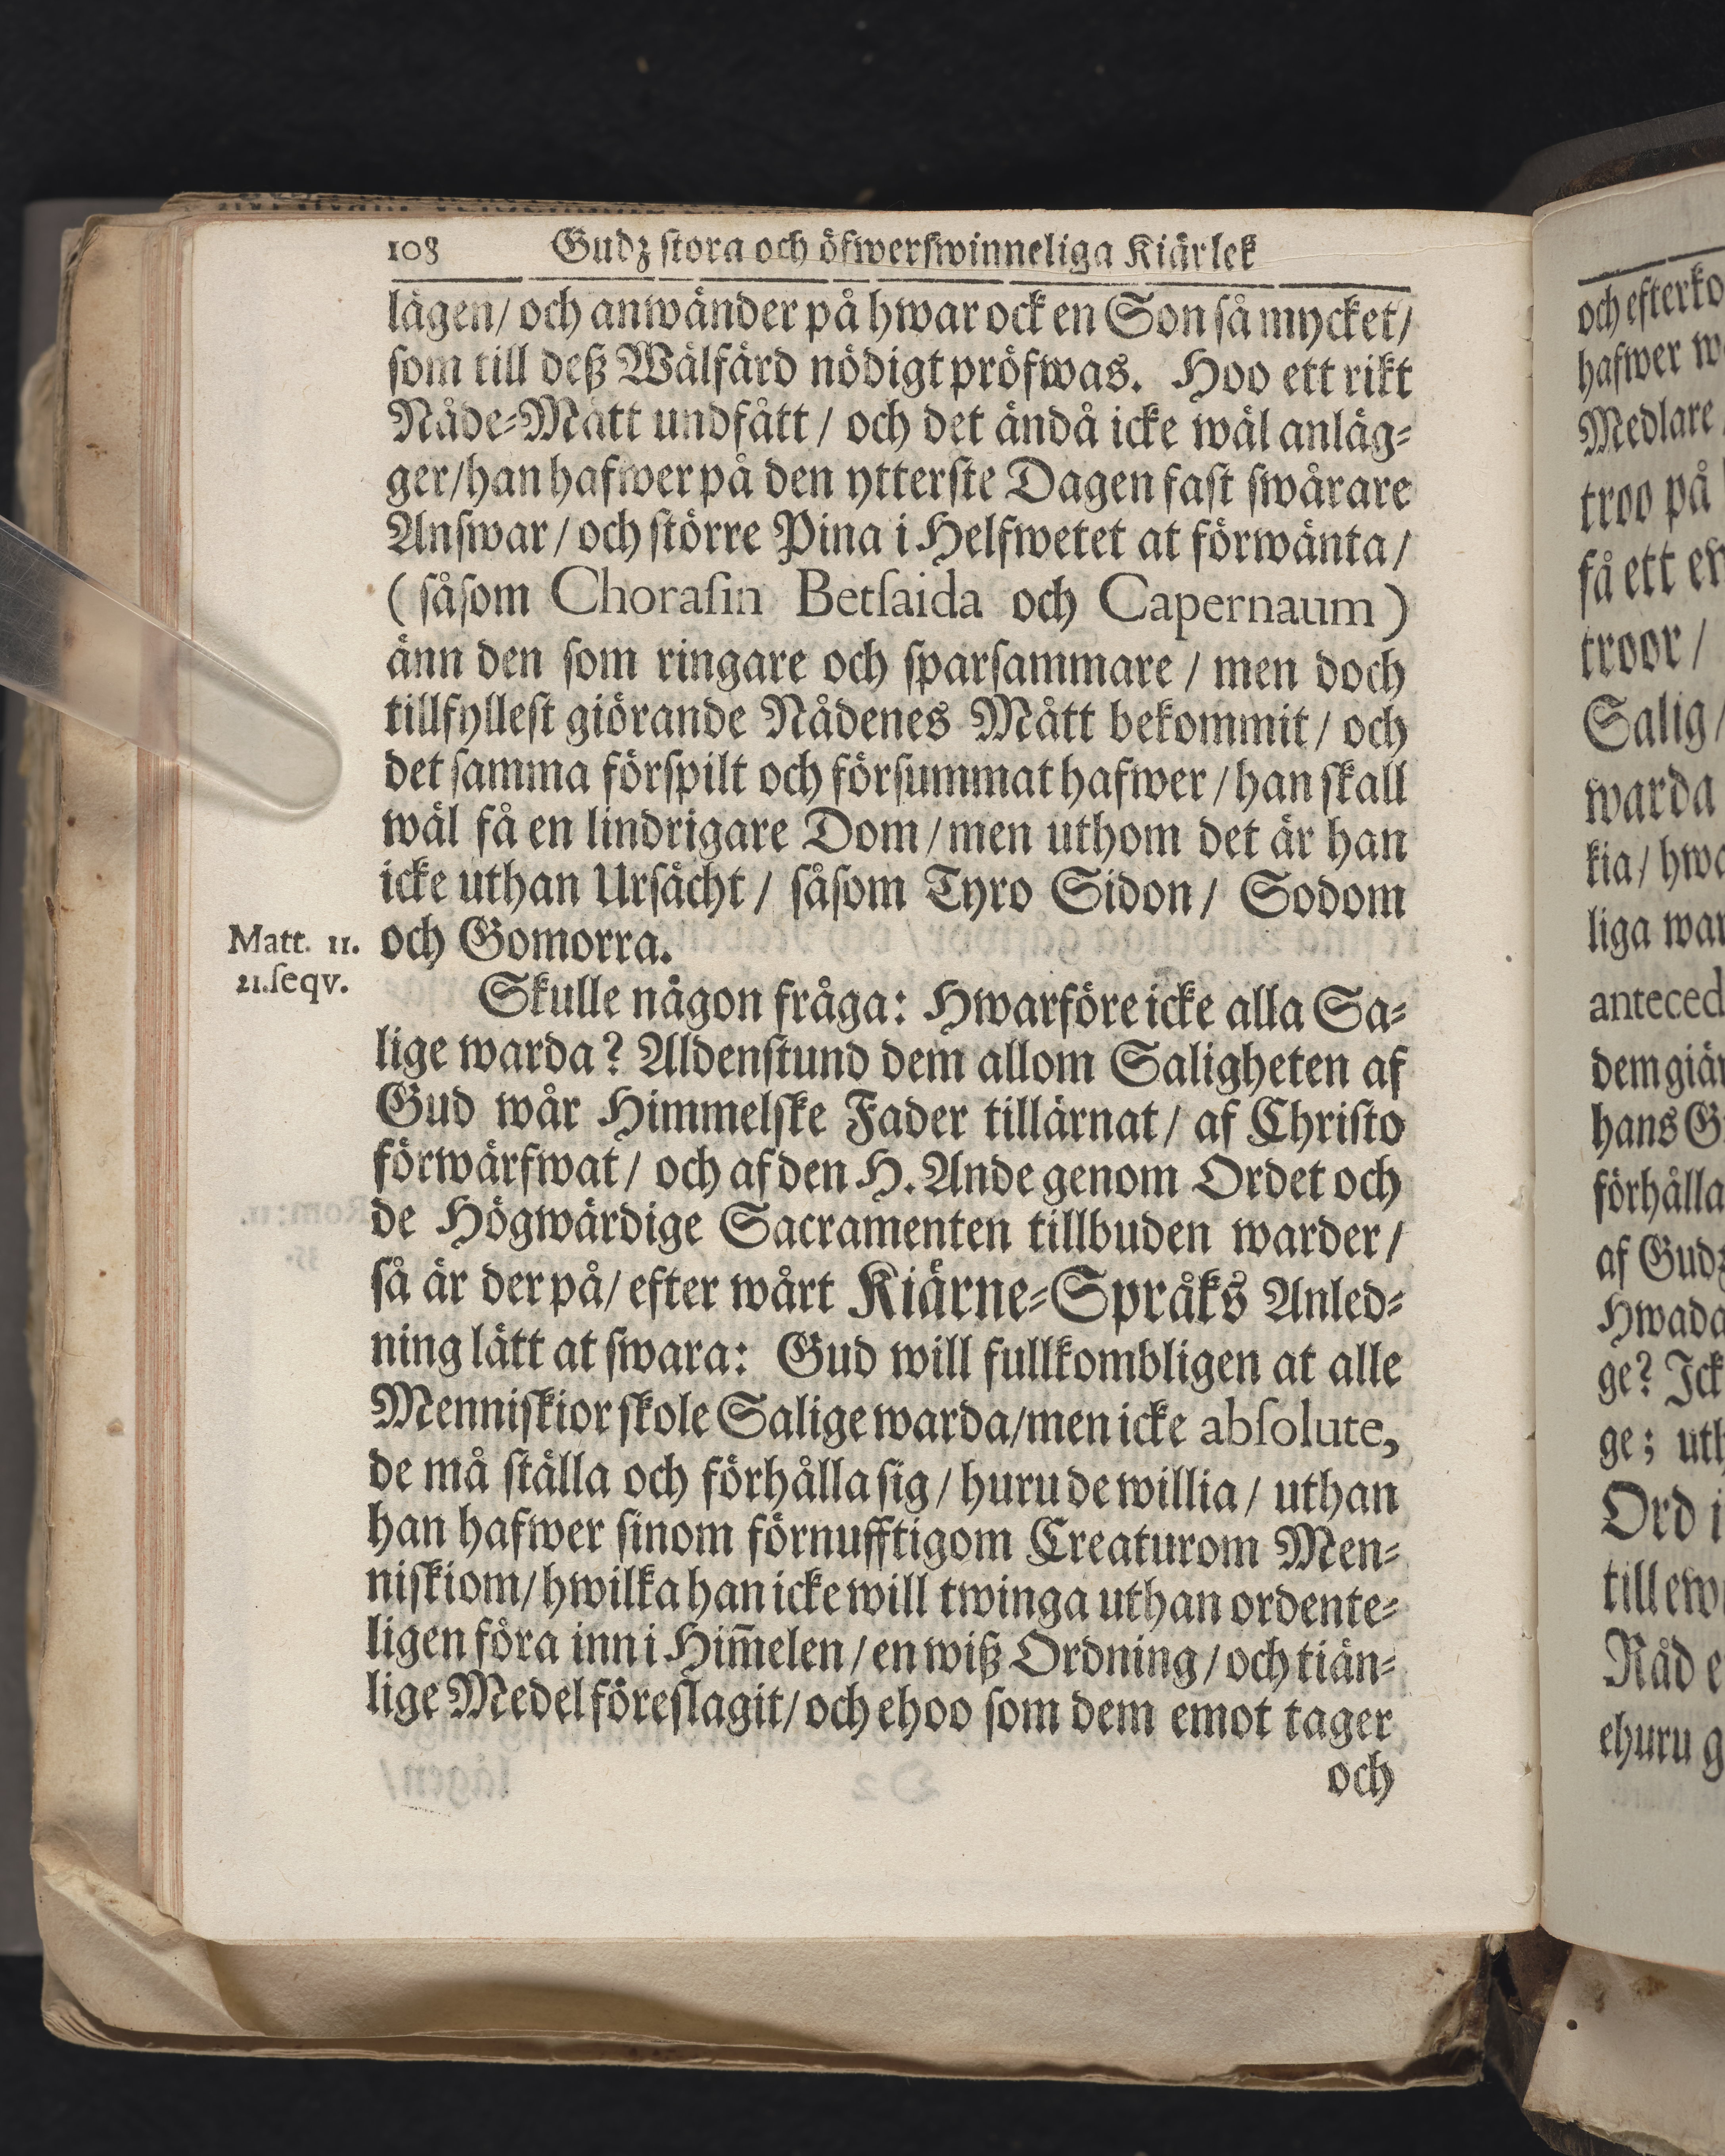 108 Gudz stora och öfwerswinneliga Kiärlek
lägen/ och anwänder på hwar ock en Son så mycket/
som till deß Wälfärd nödigt pröfwas. Hoo ett rikt
Nåde-Mått undfått / och det ändå icke wäl anläg-
ger/han hafwer på den ytterste Dagen fast swårare
Answar / och större Pina i Helfwetet at förwänta /
( såsom Chorasin Betsaida och Capernaum )
änn den som ringare och sparsammare / men doch
tillfyllest giörande Nådenes Mått bekommit / och
det samma förspilt och försummat hafwer / han skall
wäl få en lindrigare Dom / men uthom det är han
icke uthan Ursächt / såsom Tyro Sidon / Sodom
och Gomorra.
Matt. 11.
21.seqv.
Skulle någon fråga: Hwarföre icke alla Sa-
lige warda? Aldenstund dem allom Saligheten af
Gud wår Himmelske Fader tillärnat / af Christo
förwärfwat / och af den H. Ande genom Ordet och
de Högwärdige Sacramenten tillbuden warder /
så är der på/ efter wårt Kiärne-Språks Anled-
ning lätt at swara: Gud will fullkombligen at alle
Menniskior skole Salige warda/men icke absolute,
de må ställa och förhålla sig / huru de willia / uthan
han hafwer sinom förnufftigom Creaturom Men-
niskiom/ hwilka han icke will twinga uthan ordente-
ligen föra inn i Him̄elen / en wiß Ordning / och tiän-
lige Medel föreslagit/ och ehoo som dem emot tager
och
och efterko
hafwer w
Medlare
troo på
få ett ew
troor /
Salig /
warda
kia / hwa
liga war
anteced
dem giär
hans G
förhålla
af Gudz
Hwada
ge? Ick
ge; uth
Ord i
till ew
Råd e
ehuru g